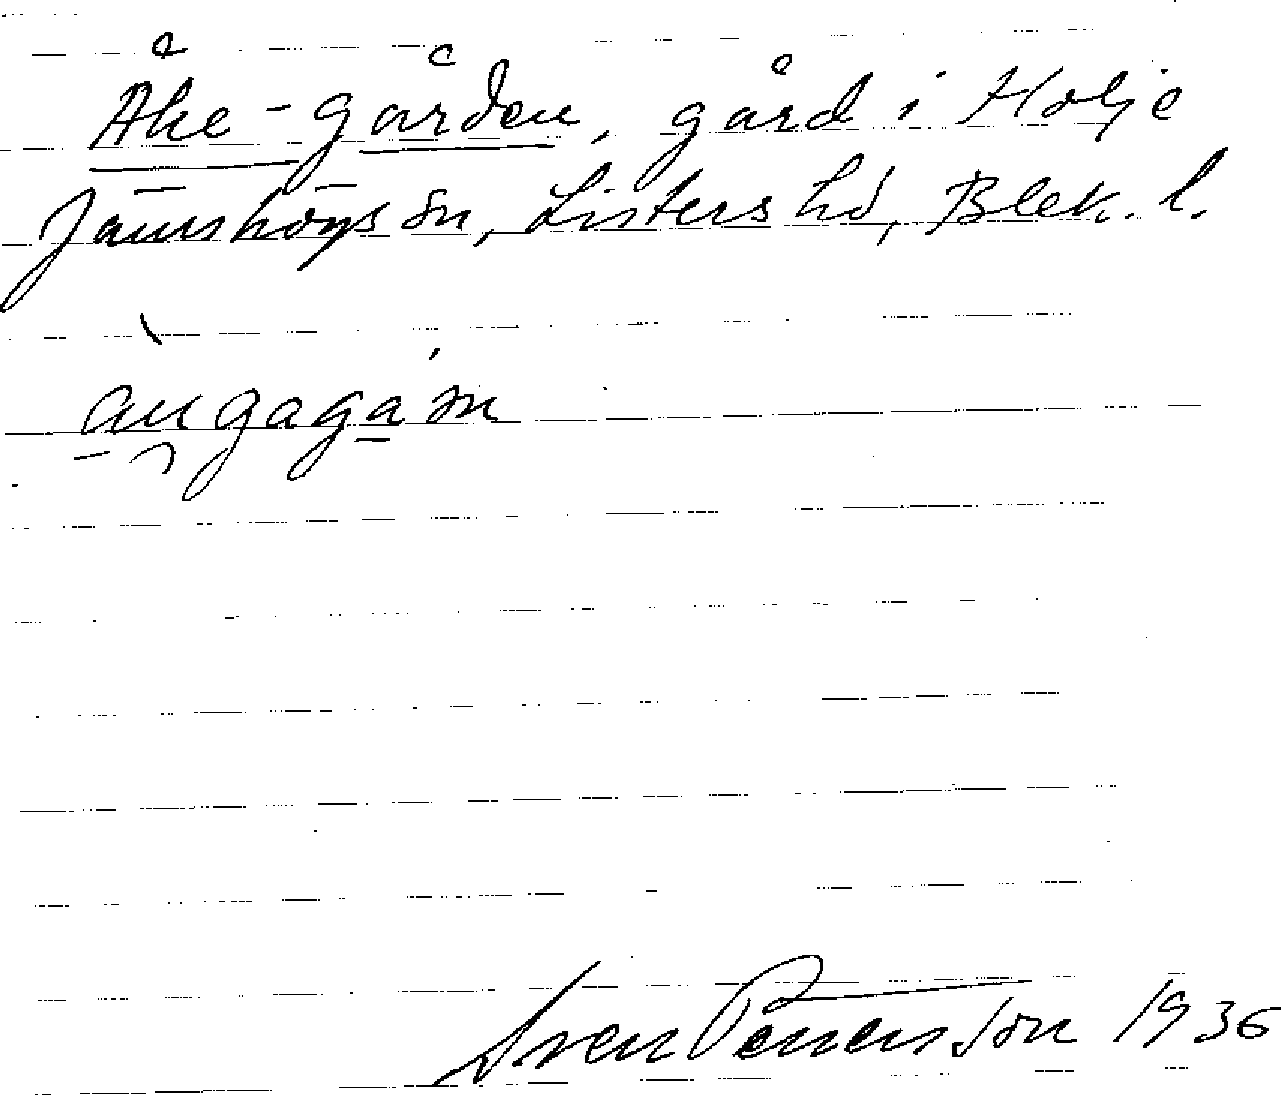 Åke-gården, gård i Holje
Jämshögs sn, Listers hd, Blek. l.
Sven Benson 1936